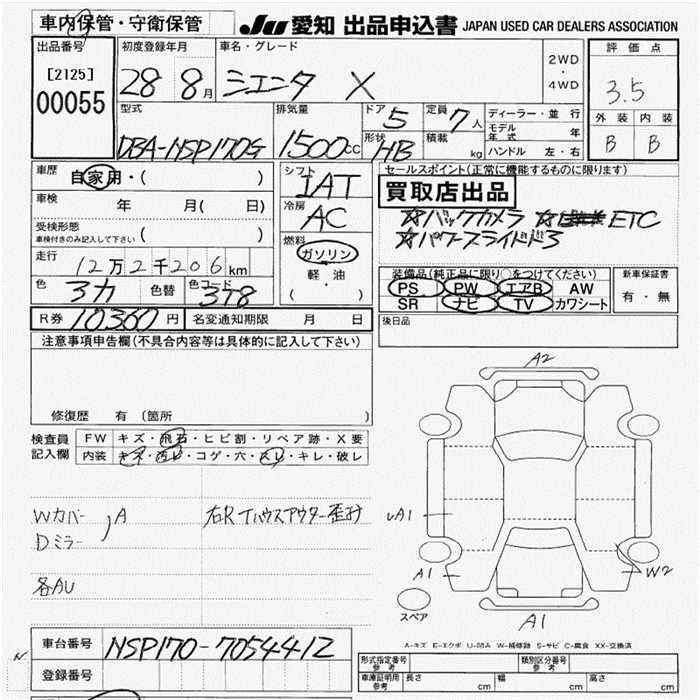 車内保管・守衛保管
JU 愛知 出品申込書 JAPAN USED CAR DEALERS ASSOCIATION
出品番号
[2125]
00055
初度登録年月
28 8月
車名・グレード
シエンタ X
2WD
・
4WD
評価点
3.5
外装 内装
B B
型式
DBA-NSP170G
排気量
1500cc
ドア 5
形状 HB
定員 7人
積載 kg
ディーラー・並行
モデル年式 年
ハンドル 左・右
車歴
自家用・( )
車検
年 月( 日)
受検形態
車検付きのみ記入して下さい
( )
走行
12万2千206km
色 3カ 色替 色コード 3T8
シフト
IAT
冷房
AC
燃料
ガソリン
軽・油
( )
セールスポイント(正常に機能するものに限ります)
買取店出品
☆バックカメラ ☆ ETC
☆パワースライドドア
装備品(純正品に限り○をつけてください)
PS PW エアB AW
SR ナビ TV カワシート
新車保証書
有・無
後日品
R券 10360円 名変通知期限 月 日
注意事項申告欄(不具合内容等は具体的に記入して下さい)
修復歴 有(箇所 )
検査員
記入欄
FW キズ・飛石・ヒビ割・リペア跡・X要
内装 キズ・汚レ・コゲ・穴・スレ・キレ・破レ
Wカバー
Dミラー
A
右RTハウスアウター歪み
各AU
A2
A1
A1
W2
スペア
A1
A-キズ E-エクボ U-凹み W-補修跡 S-サビ C-腐食 XX-交換済
車台番号 NSP170-7054412
登録番号
形式指定番号
参考
類別区分番号
参考
車庫証明用
参考
長さ cm 幅 cm 高さ cm